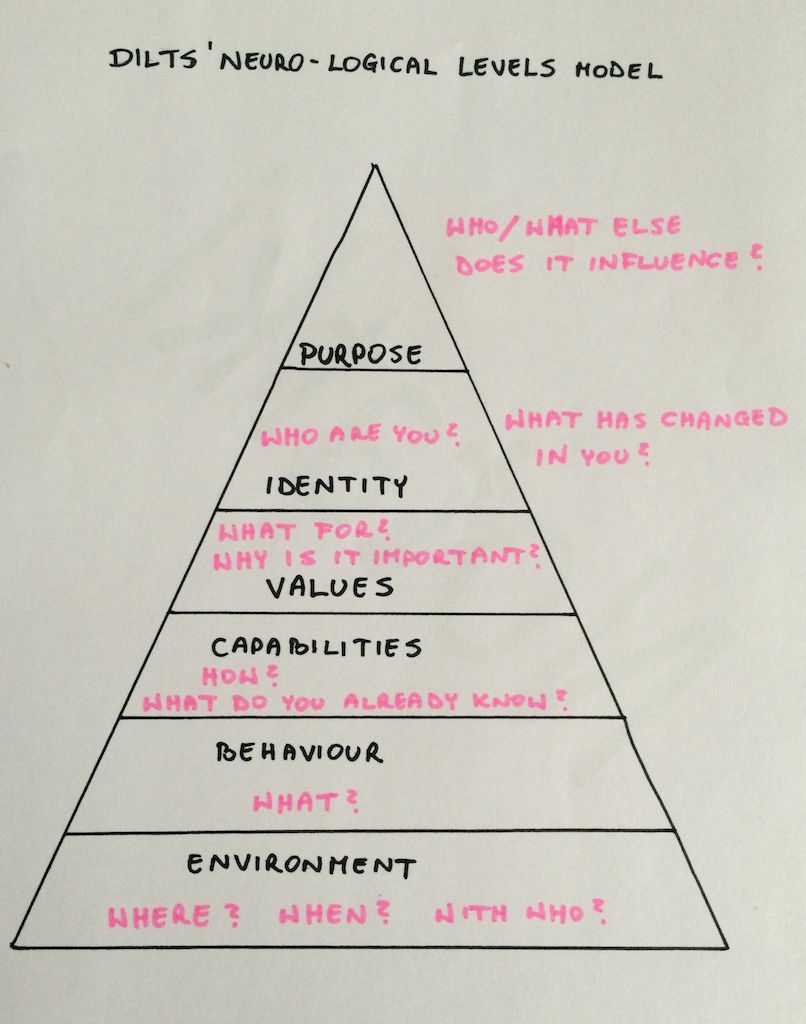 DILTS' NEURO-LOGICAL LEVELS MODEL
WHO/WHAT ELSE
DOES IT INFLUENCE?
PURPOSE
WHO ARE YOU?
WHAT HAS CHANGED
IN YOU?
IDENTITY
WHAT FOR?
WHY IS IT IMPORTANT?
VALUES
CAPABILITIES
HOW?
WHAT DO YOU ALREADY KNOW?
BEHAVIOUR
WHAT?
ENVIRONMENT
WHERE? WHEN? WITH WHO?